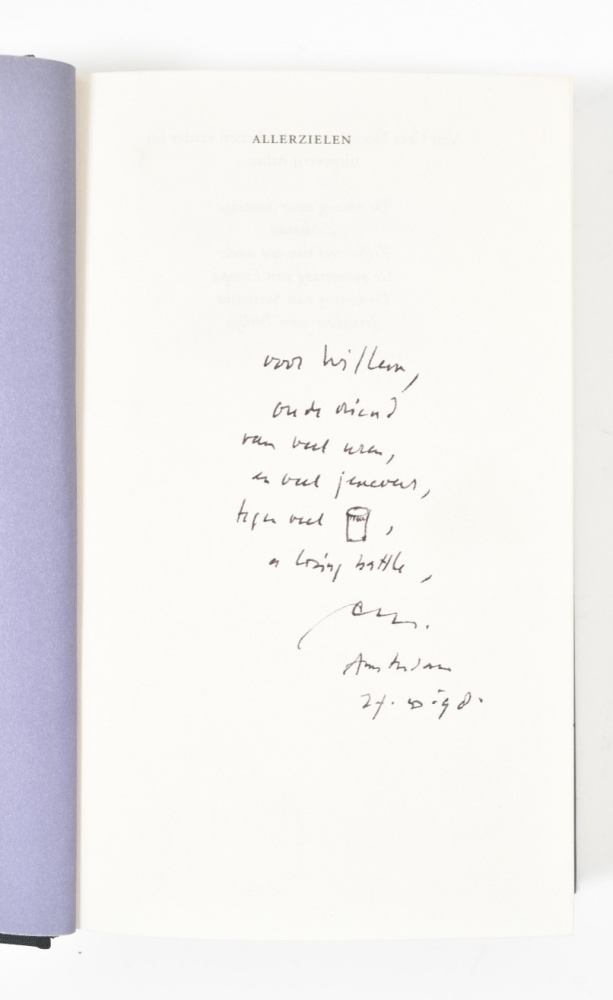 ALLERZIELEN
voor Willem,
oude vriend
van veel uren,
en veel jenevers,
tegen veel ,
a losing battle,
Amsterdam
98.